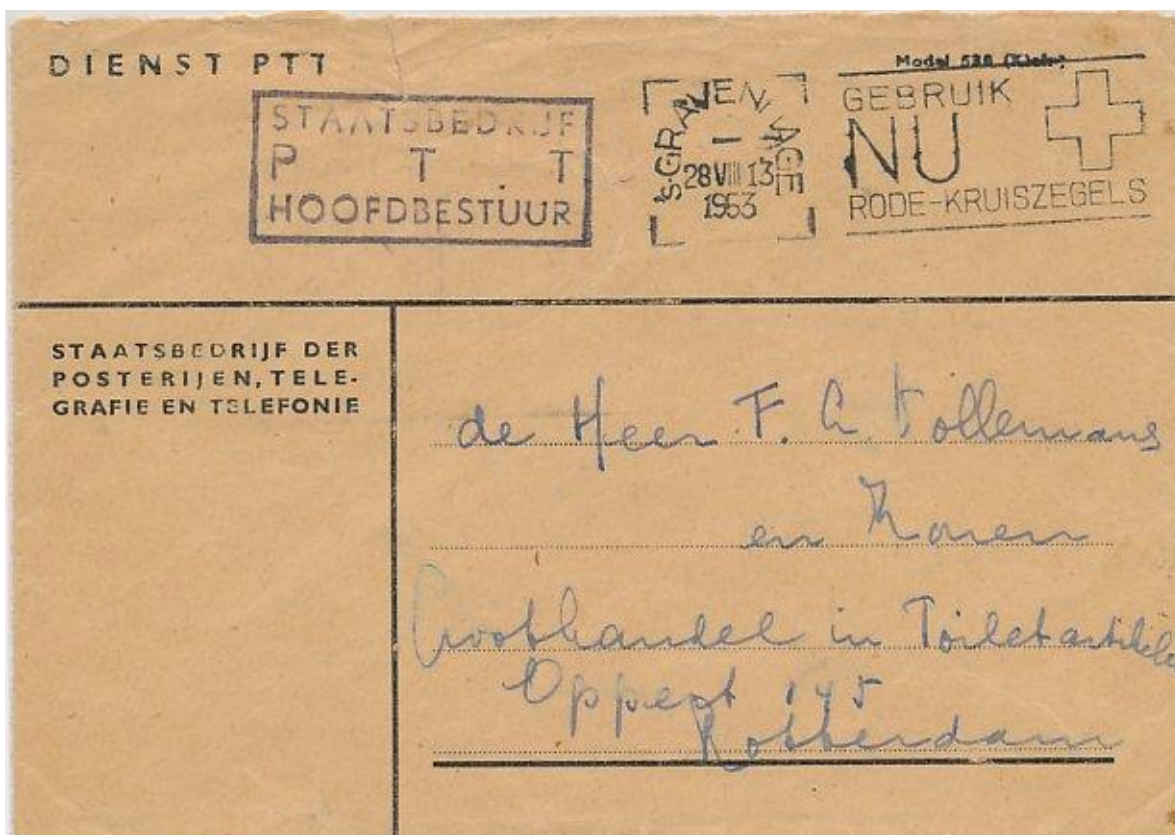 DIENST PTT
STAATSBEDRIJF
P T T
HOOFDBESTUUR
'S-GRAVENHAGE
28 VIII 13
1953
Model 528
GEBRUIK
NU
RODE-KRUISZEGELS
STAATSBEDRIJF DER
POSTERIJEN, TELE-
GRAFIE EN TELEFONIE
de Heer F. C. Vollemans
en Zonen
Groothandel in Toiletartikelen
Oppert 145
Rotterdam